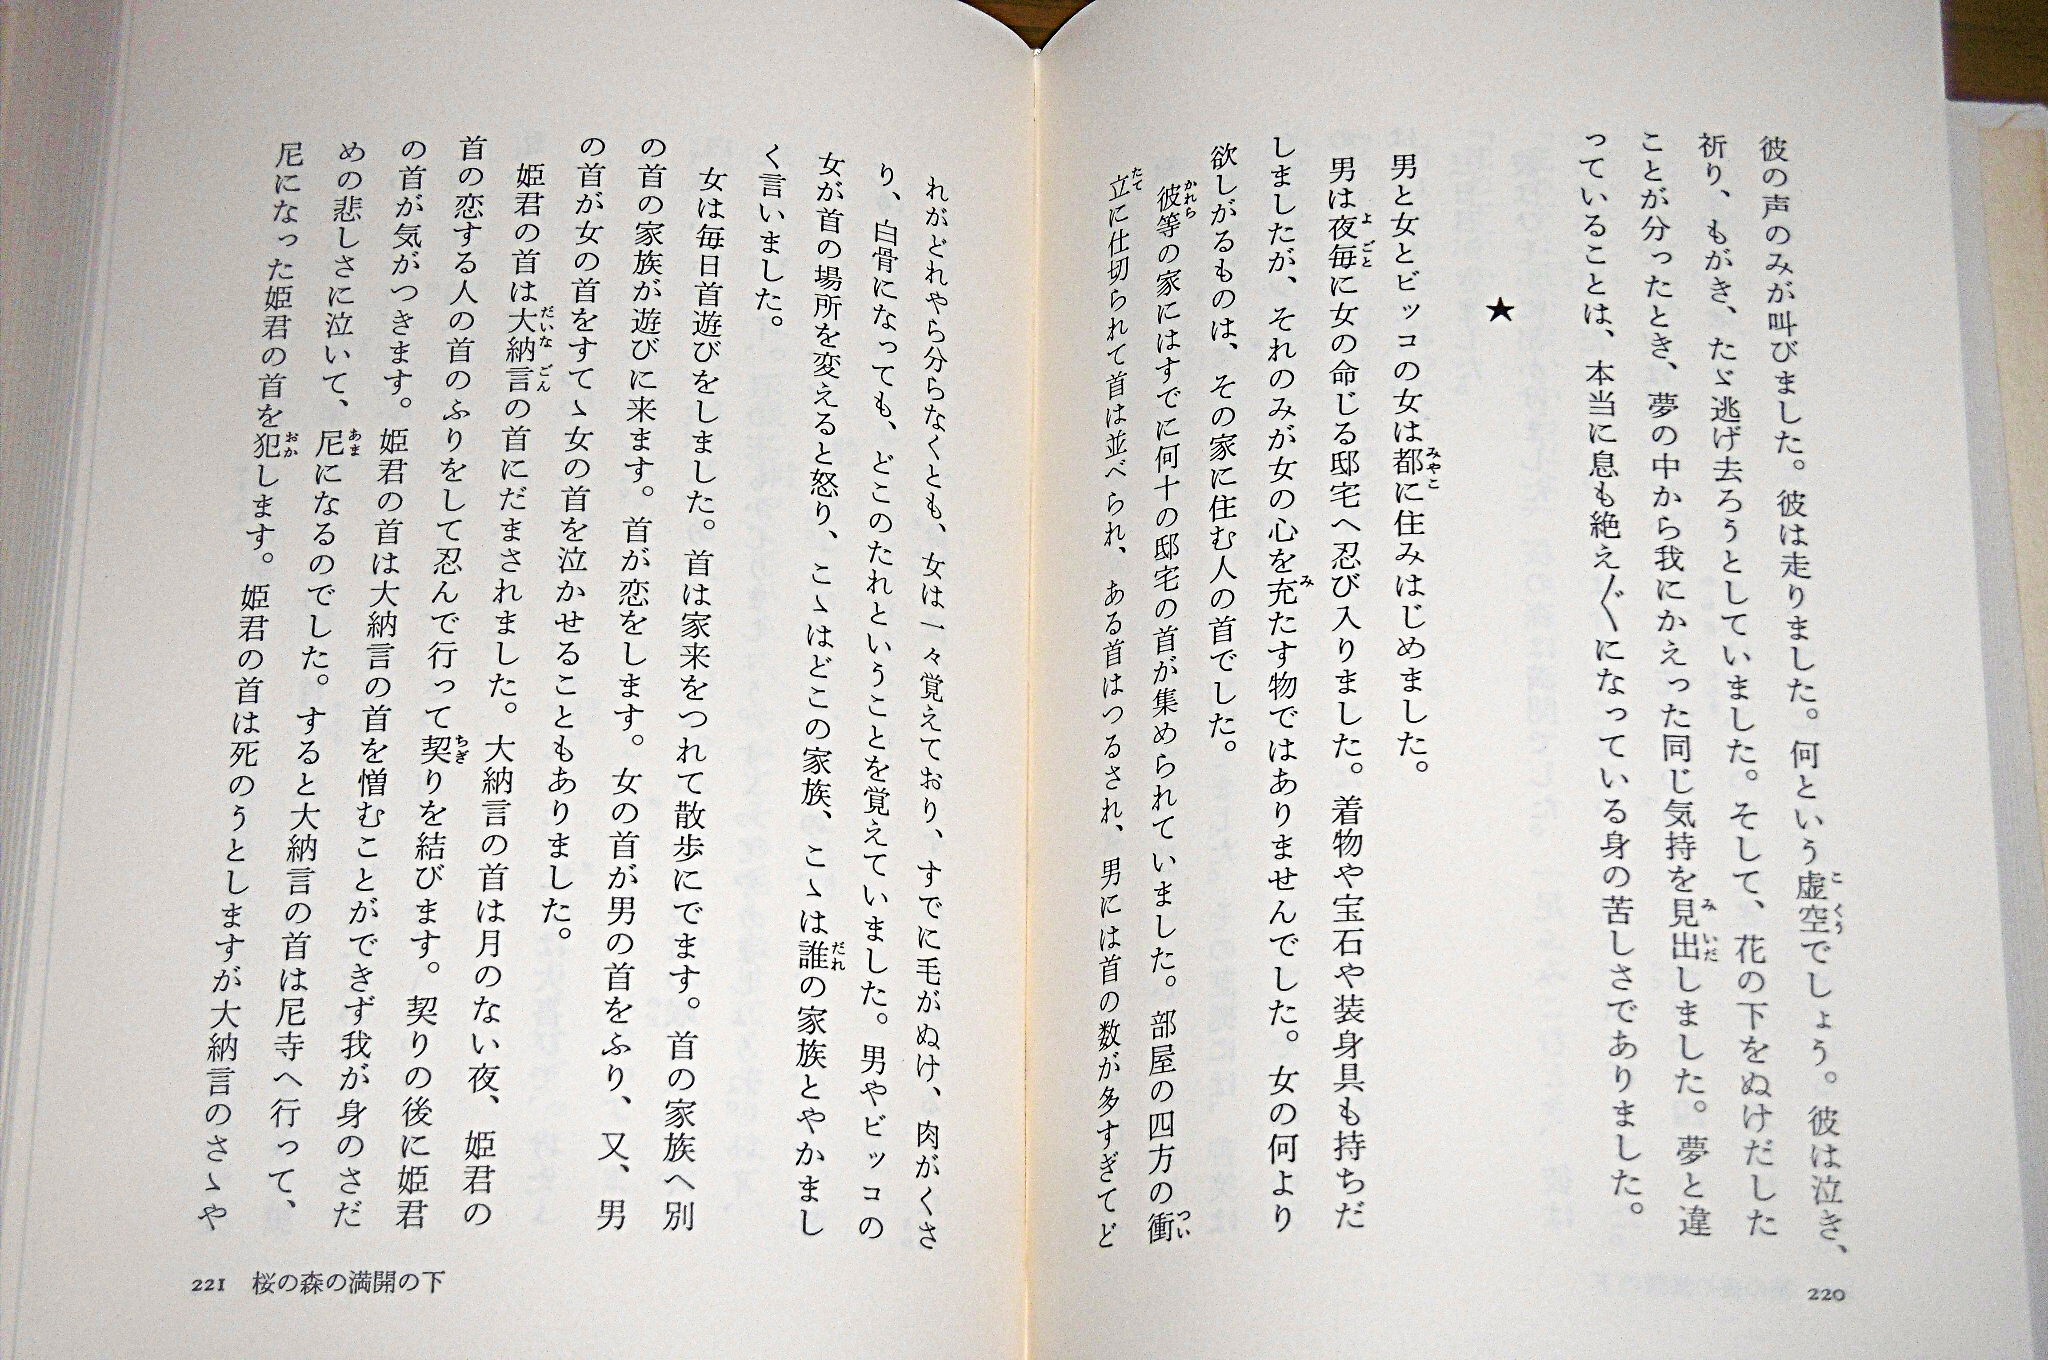 彼の声のみが叫びました。彼は走りました。何という虚空でしょう。彼は泣き、
祈り、もがき、たゞ逃げ去ろうとしていました。そして、花の下をぬけだした
ことが分ったとき、夢の中から我にかえった同じ気持を見出しました。夢と違
っていることは、本当に息も絶え〴〵になっている身の苦しさでありました。
★
男と女とビッコの女は都に住みはじめました。
男は夜毎に女の命じる邸宅へ忍び入りました。着物や宝石や装身具も持ちだ
しましたが、それのみが女の心を充たす物ではありませんでした。女の何より
欲しがるものは、その家に住む人の首でした。
彼等の家にはすでに何十の邸宅の首が集められていました。部屋の四方の衝
立に仕切られて首は並べられ、ある首はつるされ、男には首の数が多すぎてど
220
れがどれやら分らなくとも、女は一々覚えており、すでに毛がぬけ、肉がくさ
り、白骨になっても、どこのたれということを覚えていました。男やビッコの
女が首の場所を変えると怒り、こゝはどこの家族、こゝは誰の家族とやかまし
く言いました。
女は毎日首遊びをしました。首は家来をつれて散歩にでます。首の家族へ別
の首の家族が遊びに来ます。首が恋をします。女の首が男の首をふり、又、男
の首が女の首をすてゝ女の首を泣かせることもありました。
姫君の首は大納言の首にだまされました。大納言の首は月のない夜、姫君の
首の恋する人の首のふりをして忍んで行って契りを結びます。契りの後に姫君
の首が気がつきます。姫君の首は大納言の首を憎むことができず我が身のさだ
めの悲しさに泣いて、尼になるのでした。すると大納言の首は尼寺へ行って、
尼になった姫君の首を犯します。姫君の首は死のうとしますが大納言のさゝや
221 桜の森の満開の下